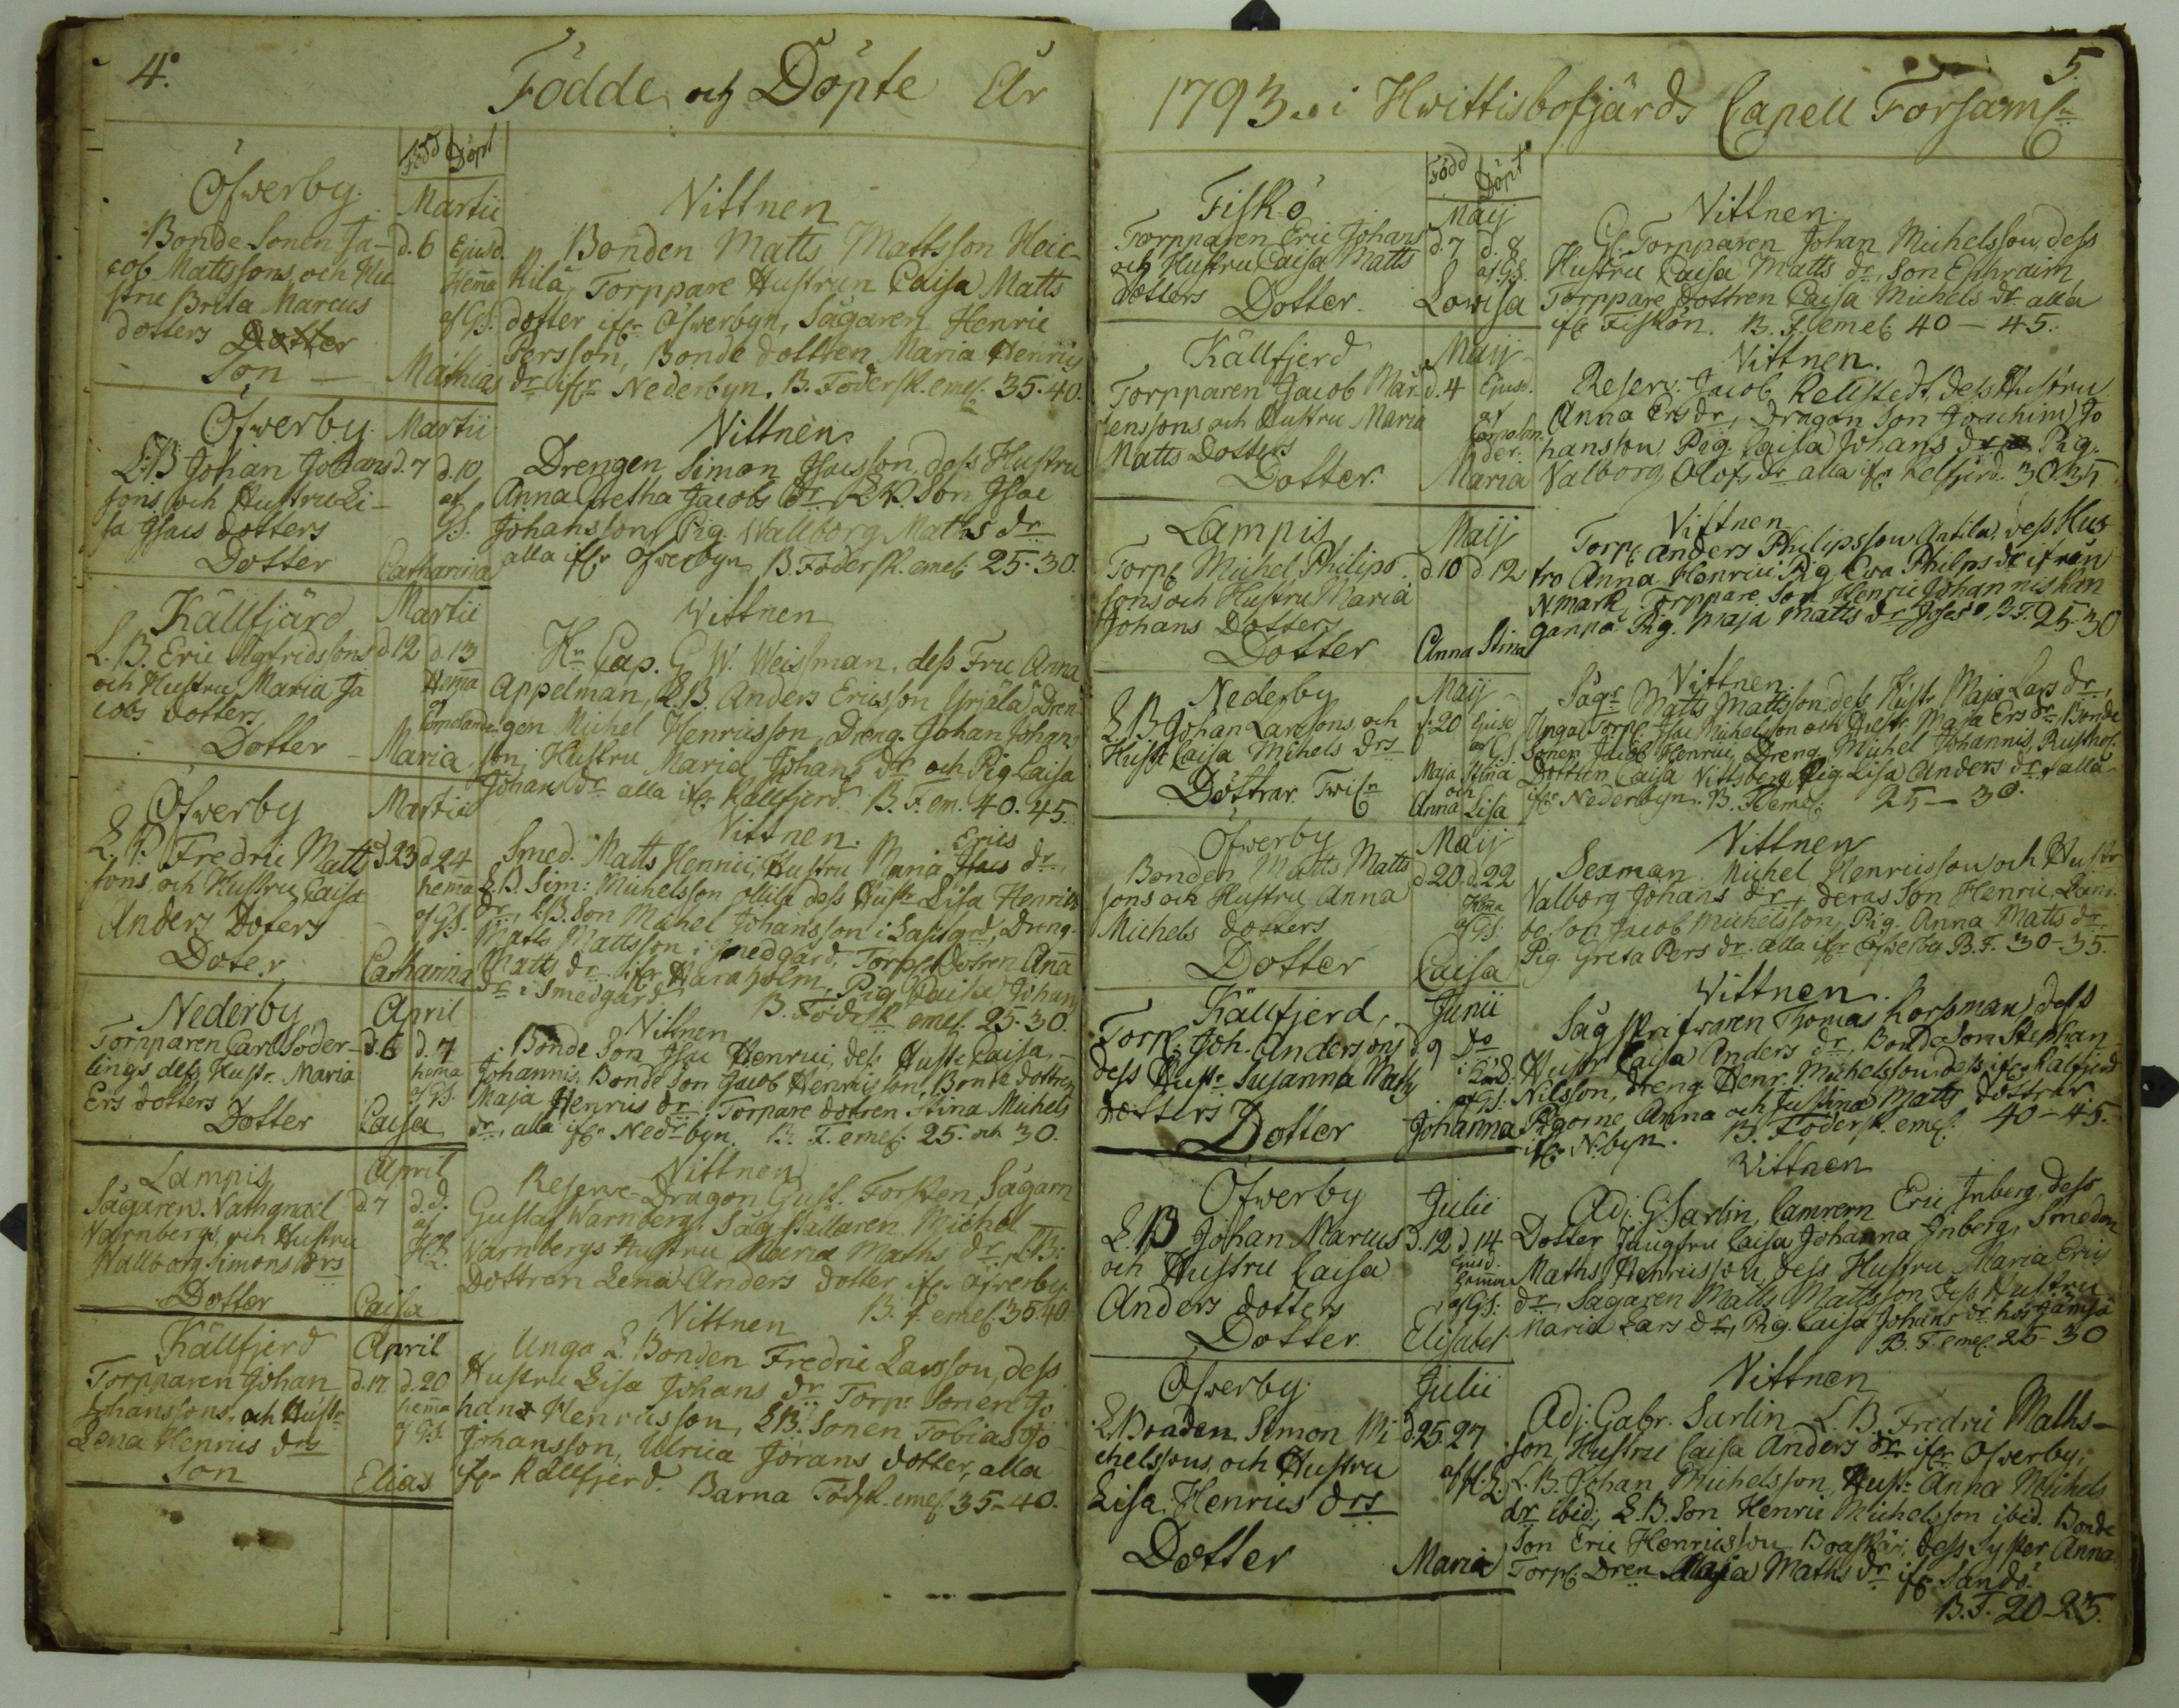 4.
Födde och Döpte År
Född Döpt
Öfwerby Martii
Vittnen
Bonde Sonen Ja-
cob Mattssons, och Hu
stru Brita Marcus
dotters Dotter
Son — Mathias
d. 6 Ejusd.
Hema
af GS.
Bonden Matts Mattsson Heic-
kilä, Torppare Hustrun Caisa Matts
dotter ifr Öfwerbyn, Sågaren Henric
Persson, Bonde dottren Maria Henrics
dr ifr Nederbyn. B. Födersk. emel. 35.40.
Öfwerby Martii
Vittnen
L.B Johan Johans
sons och Hustru Li-
sa Isacs dotters
Dotter Catharina
d. 7 d. 10
af
GS.
Drengen Simon Isacsson, dess Hustru
Anna Gretha Jacobs dr L.B. Son Isac
Johansson, Pig. Wallborg Maths dr
alla ifr Öfwerbyn B. Födersk. emel. 25.30.
Källfjärd Martii
Vittnen
L. B. Eric Sigfridssons
och Hustru Maria Ja
cobs dotters,
Dotter Maria
d 12 d. 13
Hema
Hr Cap. G. W. Weissman, dess Fru Anna
Appelman, L.B. Anders Ericsson Yrjälä, Dren
gen Michel Henricsson, Dreng. Johan Johan
son, Hustru Maria Johans dr och Pig Caisa
Johans dr alla ifr Källfjerd. B. F. em. 40.45.
Öfwerby Martii
Vittnen.
L. B. Fredric Matts
sons och Hustru Caisa
Anders Doters
Doter Catharina
d 23 d 24
hema
af GS.
Smed. Matts Henrici, Hustru Maria Erics dr,
L.B. Sim: Michelsson Ollila dess Hust. Lisa Henrics
dr, L.B. Son Michel Johansson i Dreng.
Matts Mattsson i Smedgård, Torp. Dotren Ana
Matts dr ifr Haraholm, Pig. Caisa Johans
dr i Smedgård. B. Födersk. emel. 25.30.
Nederby April
Vittnen
Torpparen Carl Söder-
lings dess Hustr. Maria
Ers dotters
Dotter Caisa
d. 6 d. 7
hema
af GS.
Bonde Son Isac Henrici, dess Hustr. Caisa
Johannis. Bonde Son Jacob Henricsson, Bonde dottren
Maja Henrics dr, Torpare dotren Stina Michels
dr, alla ifr Nederbyn. B. F. emel. 25. och 30.
Lampis April
Vittnen
Sågaren Nathanael
Varnbergs, och Hustru
Wallborg Simons drs
Dotter Caisa
d. 7 d. d.
af
H.L.
Reserve-Dragon Gust. Forsten, Sågarn
Gustaf Warnberg. Sågställaren Michel
Varnbergs Hustru Maria Maths dr L.B:
Dottren Lena Anders dotter ifr öfwerby
B. F. emel. 35.40.
Källfjerd April
Vittnen
Torpparen Johan
Johanssons, och Hustr.
Lena Henrics drs
Son Elias
d. 17 d. 20
hema
af GS.
Unga L. Bonden Fredric Larsson, dess
Hustru Lisa Johans dr Torp. Sonen Jo
hans Henricsson, L.B. Sonen Tobias Jo
Johansson, Ulrica Jörans dotter, alla
ifr Källfjerd. Barna Födsk. emel. 35-40.
5.
1793. i Hwittisbofjärds Capell Forsaml.
Född Döpt
Fiskö Maij
Vittnen
Torpparen Eric Johans
och Hustru Caisa Matts
dotters Dotter. Lowisa
d 7 d. 8
af GS.
Gl. Torpparen Johan Michelsson, dess
Hustru Caisa Matts dr, Son Ephraim,
Torppare Dottren Caisa Michels dr alla
ifr Fiskön. B. F. emel. 40-45.
Källfjerd Maij
Vittnen.
Torpparen Jacob Mår-
tenssons och Hustru Maria
Matts Dotters
Dotter. Maria
d. 4 Ejusd.
af
Reserv. Jacob Rellstedt, dess Hustru
Anna Ers dr, Dragon Son Joachim Jo
hansson, Pig. Caisa Johans dr Pig.
Valborg Olofs dr alla ifr Kelfjerd. 30.35
Lampis Maij
Vittnen
Torp. Michel Philips
sons och Hustru Maria
Johans Dotters
Dotter Anna Stina
d 10 d 12
Torp. Anders Philipsson Antila, dess Hus
tro Anna Henrici. Pig. Ewa Philps dr ifrån
N.mark, Torppare Son Henric Johannis
Pig. Maja Matts dr B.F. 25.30
Nederby Maij
Vittnen.
L.B Johan Larssons, och
Hust. Caisa Michels drs
Döttrar. Twil.
Maja Stina
och
Anna Lisa
d. 20 Ejusd
af GS
Sågr. Matts Mattsson dess Hust. Maja Lars dr,
Unga Torp. Isac Michelsson och Hustr. Maja Ers dr, Bonde
Sonen Jacob Henrici, Dreng. Michel Johannis, Rusthol.
Dottren Caisa Vittsberg, Pig. Lisa Anders dr, alla
ifr Nederbyn. B. F. emel. 25-30.
Öfwerby Maij
Vittnen
Bonden Matts Matts
sons och Hustru Anna
Michels dotters
Dotter Caisa
d 20. d. 22
Hema
af GS.
Sexman. Michel Henricsson och Hustr.
Valborg Johans dr, deras Son Henric, Lans
bo. Son Jacob Michelsson, Pig. Anna Matts dr,
Pig. Greta Pers dr. alla ifr Öfwerby B. F. 30-35.
Källfjerd Junii
Vittnen.
Torp. Joh. Anderssons
dess Hustr. Susanna Maths
dotters Dotter Johanna
d. 9 Do
af GS.
Sågskrifwaren Thomas Korsman, dess
Hustr. Caisa Anders dr, Bonde Son Stephan
Nilsson, Dreng. Henr. Michelsson dess ifr Källfjerd
Pigorne Anna och Justina Matts dottrar
ifr N.byn. B. Födersk. emel. 40-45.
Öfwerby Julii
Vittnen
L. B Johan Marcus
och Hustru Caisa
Anders dotters
Dotter. Elisabet
d. 12 d. 14
af GS.
Adj. G. Sarlin, Camrern Eric Inberg, dess
Dotter Jungfru Caisa Johanna Inberg, Smeden
Maths Henricsson, dess Hustru Maria Erics
dr, Sågaren Matts Mattsson, dess Hustru
Maria Lars dr, Pig. Caisa Johans dr
B. F. emel. 25-30
Öfwerby Julii
Vittnen
L Bonden Simon Mi
chelssons, och Hustru
Lisa Henrics drs
Dotter Maria
d. 25. 27
af H.L.
Adj. Gabr. Sarlin L. B. Fredric Maths-
son, Hustru Caisa Anders dr ifr Öfwerby,
L. B. Johan Michelsson, Hustr. Anna Michels
dr ibid., L. B. Son Henric Michelsson ibid. Bonde
Son Eric Henricsson Boaskär, dess Syster Anna
Torp. Dren Maja Maths dr ifr Sandö.
B. F. 20-25.